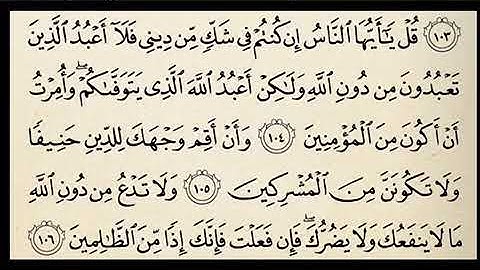 ١٠٣ قُلْ يَـٰٓأَيُّهَا ٱلنَّاسُ إِن كُنتُمْ فِى شَكٍّ مِّن دِينِى فَلَآ أَعْبُدُ ٱلَّذِينَ
تَعْبُدُونَ مِن دُونِ ٱللَّهِ وَلَـٰكِنْ أَعْبُدُ ٱللَّهَ ٱلَّذِى يَتَوَفَّىٰكُمْ ۖ وَأُمِرْتُ
أَنْ أَكُونَ مِنَ ٱلْمُؤْمِنِينَ ١٠٤ وَأَنْ أَقِمْ وَجْهَكَ لِلدِّينِ حَنِيفًا
وَلَا تَكُونَنَّ مِنَ ٱلْمُشْرِكِينَ ١٠٥ وَلَا تَدْعُ مِن دُونِ ٱللَّهِ
مَا لَا يَنفَعُكَ وَلَا يَضُرُّكَ ۖ فَإِن فَعَلْتَ فَإِنَّكَ إِذًا مِّنَ ٱلظَّـٰلِمِينَ ١٠٦